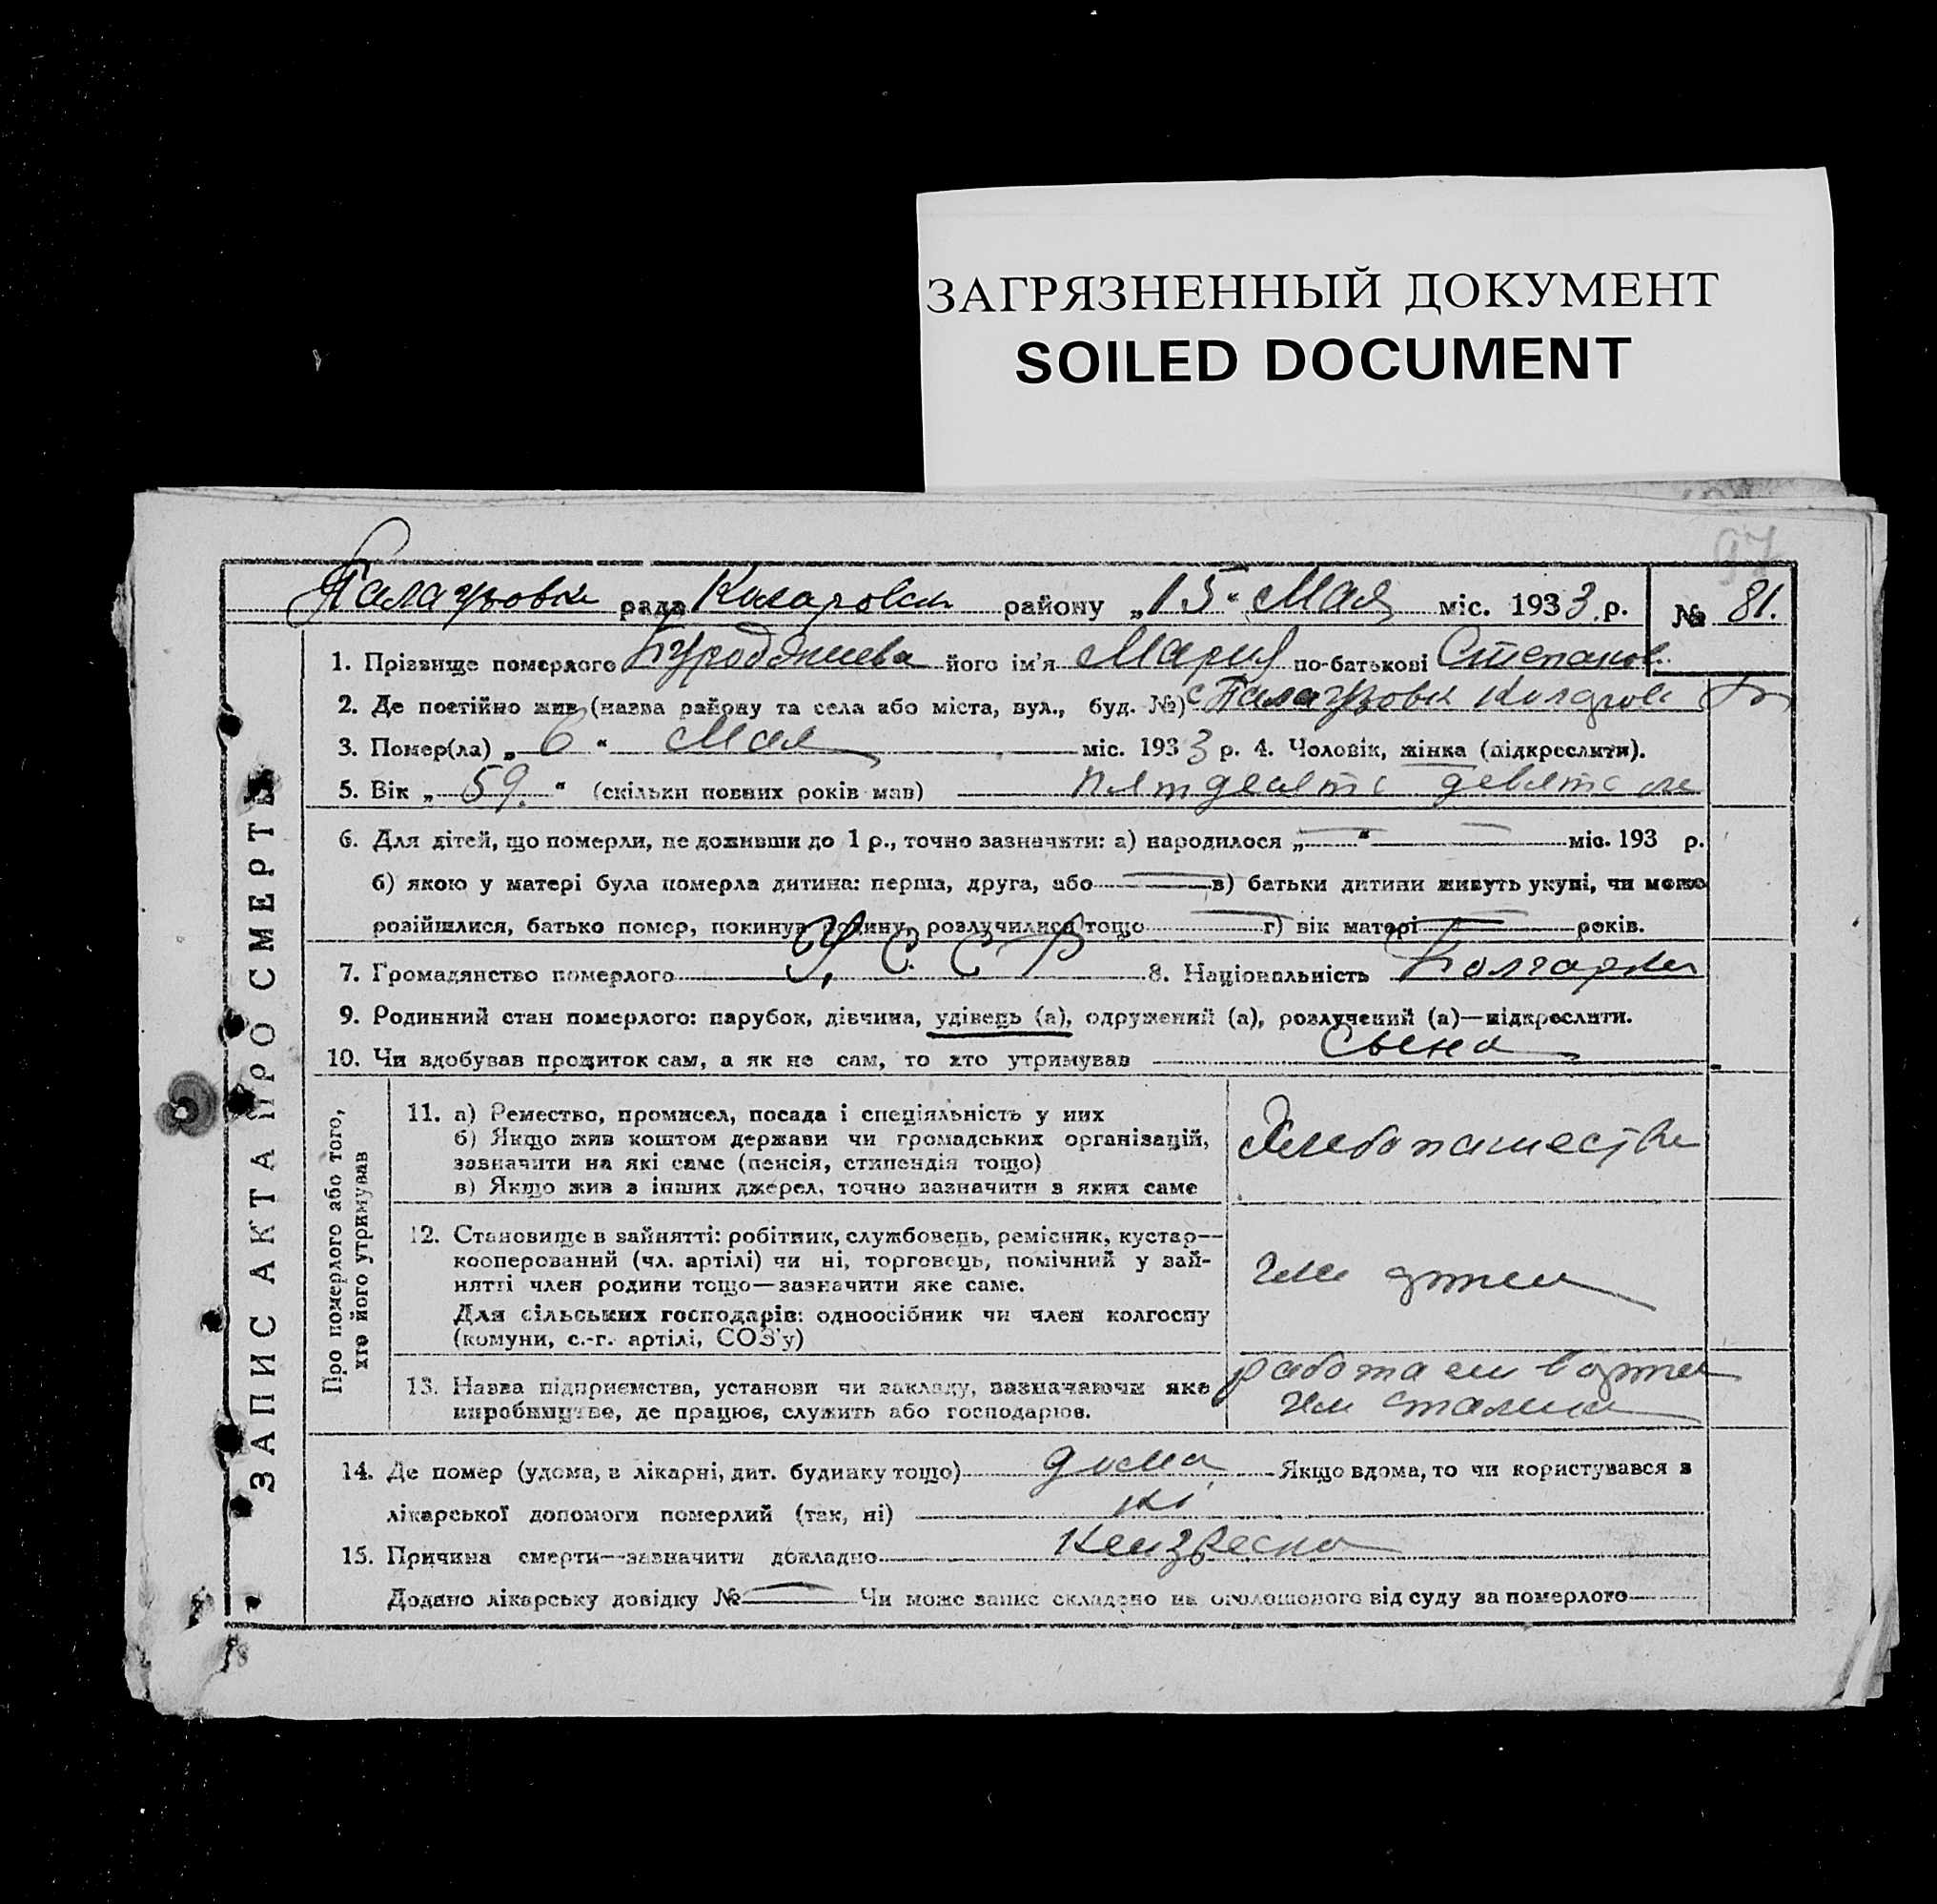 ЗАГРЯЗНЕННЫЙ ДОКУМЕНТ
SOILED DOCUMENT
97
рада району „15“ Мая міс. 1933 р. № 81.
1. Прізвище померлого його ім'я Мария по-батькові Степанов.
2. Де постійно жив (назва району та села або міста, вул., буд. №) с
3. Помер(ла) „6“ Мая міс. 1933 р. 4. Чоловік, жінка (підкреслити).
5. Вік „59.“ (скільки повних років мав) пятдесятъ девятъ
6. Для дітей, що померли, не доживши до 1 р., точно зазначити: а) народилося „—“ — міс. 193 р.
б) якою у матері була померла дитина: перша, друга, або — в) батьки дитини живуть укупі, чи може
розійшлися, батько помер, покинув родину, розлучилися тощо — г) вік матері — років.
7. Громадянство померлого У. С. С. Р 8. Національність Болгарка
9. Родинний стан померлого: парубок, дівчина, удівець (а), одружений (а), розлучений (а)—підкреслити.
10. Чи здобував прожиток сам, а як не сам, то хто утримував Сына
ЗАПИС АКТА ПРО СМЕРТЬ
Про померлого або того,
хто його утримував
11. а) Ремество, промисел, посада і спеціяльність у них
б) Якщо жив коштом держави чи громадських організацій,
зазначити на які саме (пенсія, стипендія тощо)
в) Якщо жив з інших джерел, точно зазначити з яких саме
Хлебопашества
12. Становище в зайнятті: робітник, службовець, ремісник, кустар—
кооперований (чл. артілі) чи ні, торговець, помічний у зай-
нятті член родини тощо—зазначити яке саме.
Для сільських господарів: одноосібник чи член колгоспу
(комуни, с.-г. артілі, СОЗ'у)
13. Назва підприємства, установи чи закладу, зазначаючи яке
виробництво, де працює, служить або господарює.
14. Де помер (удома, в лікарні, дит. будинку тощо) дома Якщо вдома, то чи користувався з
лікарської допомоги померлий (так, ні) ні
15. Причина смерти—зазначити докладно
Додано лікарську довідку № — Чи може запис складено на оголошеного від суду за померлого